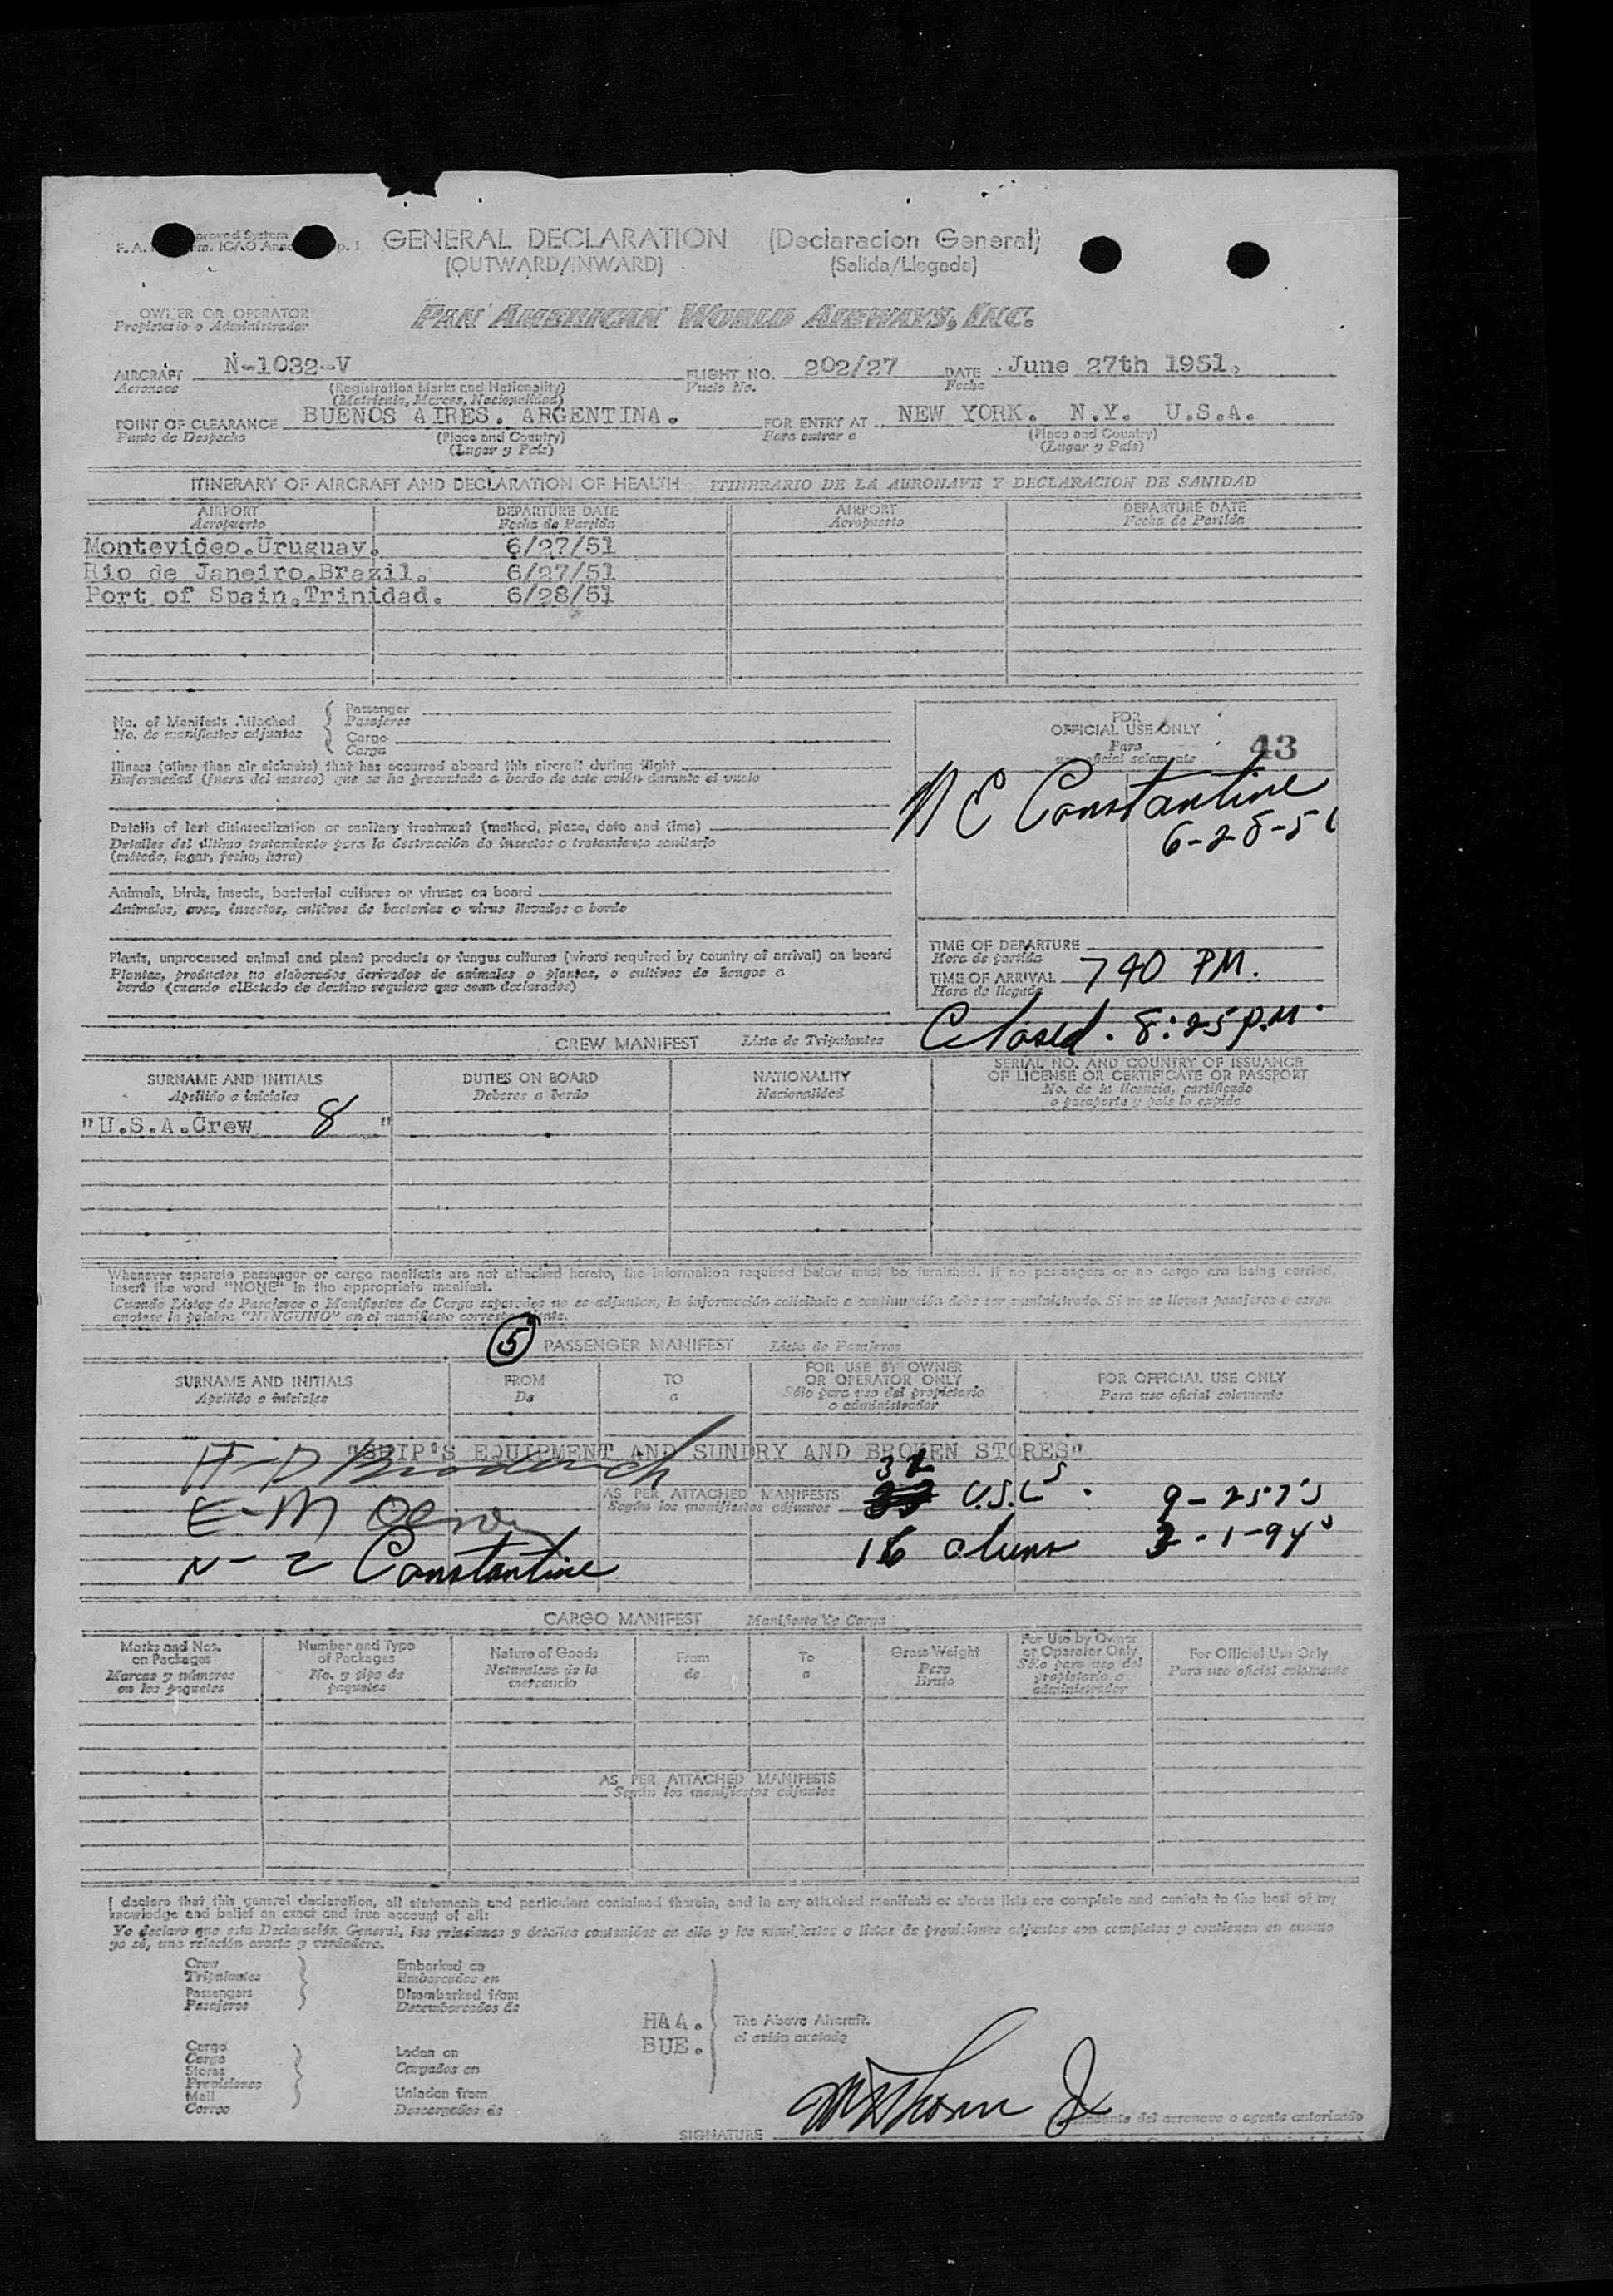 GENERAL DECLARATION (Declaracion General)
(OUTWARD/INWARD) (Salida/Llegada)
OWNER OR OPERATOR PAN AMERICAN WORLD AIRWAYS, INC.
Propietario o Administrador
AIRCRAFT N-1032-V FLIGHT NO. 202/27 DATE June 27th 1951.
Aeronave (Registration Marks and Nationality) Vuelo No. Fecha
(Matricula, Marcas, Nacionalidad)
POINT OF CLEARANCE BUENOS AIRES. ARGENTINA. FOR ENTRY AT NEW YORK. N.Y. U.S.A.
Punto de Despacho (Place and Country) Para entrar a (Place and Country)
(Lugar y País) (Lugar y País)
ITINERARY OF AIRCRAFT AND DECLARATION OF HEALTH ITINERARIO DE LA AERONAVE Y DECLARACION DE SANIDAD
AIRPORT DEPARTURE DATE AIRPORT DEPARTURE DATE
Aeropuerto Fecha de Partida Aeropuerto Fecha de Partida
Montevideo.Uruguay. 6/27/51
Rio de Janeiro.Brazil. 6/27/51
Port of Spain.Trinidad. 6/28/51
No. of Manifests Attached
No. de manifiestos adjuntos
Passenger
Pasajeros
Cargo
Carga
Illness (other than air sickness) that has occurred aboard this aircraft during flight
Enfermedad (fuera del mareo) que se ha presentado a bordo de este avión durante el vuelo
Details of last disinsectization or sanitary treatment (method, place, date and time)
Detalles del último tratamiento para la destrucción de insectos o tratamiento sanitario
(método, lugar, fecha, hora)
Animals, birds, insects, bacterial cultures or viruses on board
Animales, aves, insectos, cultivos de bacterias o virus llevados a bordo
Plants, unprocessed animal and plant products or fungus cultures (where required by country of arrival) on board
Plantas, productos no elaborados derivados de animales o plantas, o cultivos de hongos a
bordo (cuando elEstado de destino requiera que sean declarados)
FOR
OFFICIAL USE ONLY
Para
oficial solamente
43
N E Constantine
6-28-51
TIME OF DEPARTURE
Hora de partida
TIME OF ARRIVAL 740 PM.
Hora de llegada
Closed. 8:25 P.M.
CREW MANIFEST Lista de Tripulantes
SURNAME AND INITIALS DUTIES ON BOARD NATIONALITY SERIAL NO. AND COUNTRY OF ISSUANCE
OF LICENSE OR CERTIFICATE OR PASSPORT
Apellido e iniciales Deberes a bordo Nacionalidad No. de la licencia, certificado
o pasaporte y país lo expide
"U.S.A.Crew 8 "
Whenever separate passenger or cargo manifests are not attached hereto, the information required below must be furnished. If no passengers or no cargo are being carried,
insert the word "NONE" in the appropriate manifest.
Cuando Listas de Pasajeros o Manifiestos de Carga separados no se adjuntan, la información solicitada a continuación debe ser suministrada. Si no se llevan pasajeros o carga
anótese la palabra "NINGUNO" en el manifiesto correspondiente.
5 PASSENGER MANIFEST Lista de Pasajeros
SURNAME AND INITIALS FROM TO FOR USE BY OWNER
OR OPERATOR ONLY FOR OFFICIAL USE ONLY
Apellido e iniciales De a Sólo para uso del propietario
o administrador Para uso oficial solamente
"SHIP'S EQUIPMENT AND SUNDRY AND BROKEN STORES"
AS PER ATTACHED MANIFESTS 32 9-257's
Según los manifiestos adjuntos
E-M Olson
N- E Constantine 16 aliens 3-1-94s
CARGO MANIFEST Manifiesto de Carga
Marks and Nos.
on Packages
Marcas y números
en los paquetes
Number and Type
of Packages
No. y tipo de
paquetes
Nature of Goods
Naturaleza de la
mercancía
From
de
To
a
Gross Weight
Peso
Bruto
For Use by Owner
or Operator Only
Sólo para uso del
propietario o
administrador
For Official Use Only
Para uso oficial solamente
AS PER ATTACHED MANIFESTS
Según los manifiestos adjuntos
I declare that this general declaration, all statements and particulars contained therein, and in any attached manifests or stores lists are complete and contain to the best of my
knowledge and belief an exact and true account of all:
Yo declaro que esta Declaración General, las relaciones y detalles contenidos en ella y los manifiestos o listas de provisiones adjuntos son completos y contienen en cuanto
yo sé, una relación exacta y verdadera.
Crew
Tripulantes
Passengers
Pasajeros
Embarked on
Embarcados en
Disembarked from
Desembarcados de
Cargo
Carga
Stores
Provisiones
Mail
Correo
Laden on
Cargados en
Unladen from
Descargados de
HAA.
BUE.
The Above Aircraft.
el avión anotado
SIGNATURE
del aeronave o agente autorizado